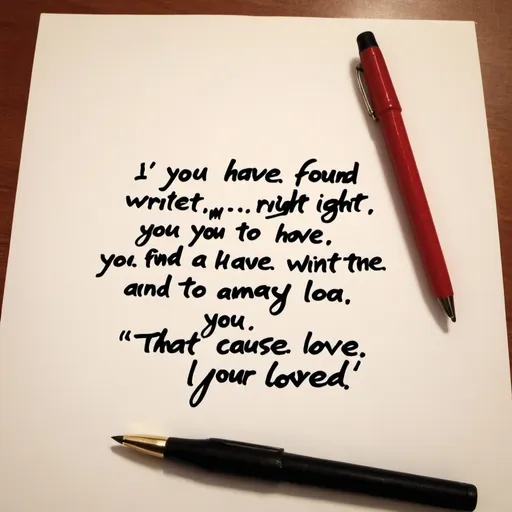 I' you have. found
writet.,, ... right ight.
you you to have.
you. find a Have. wint the.
and to amay loa.
you.
"That cause. love.
I your loved.'